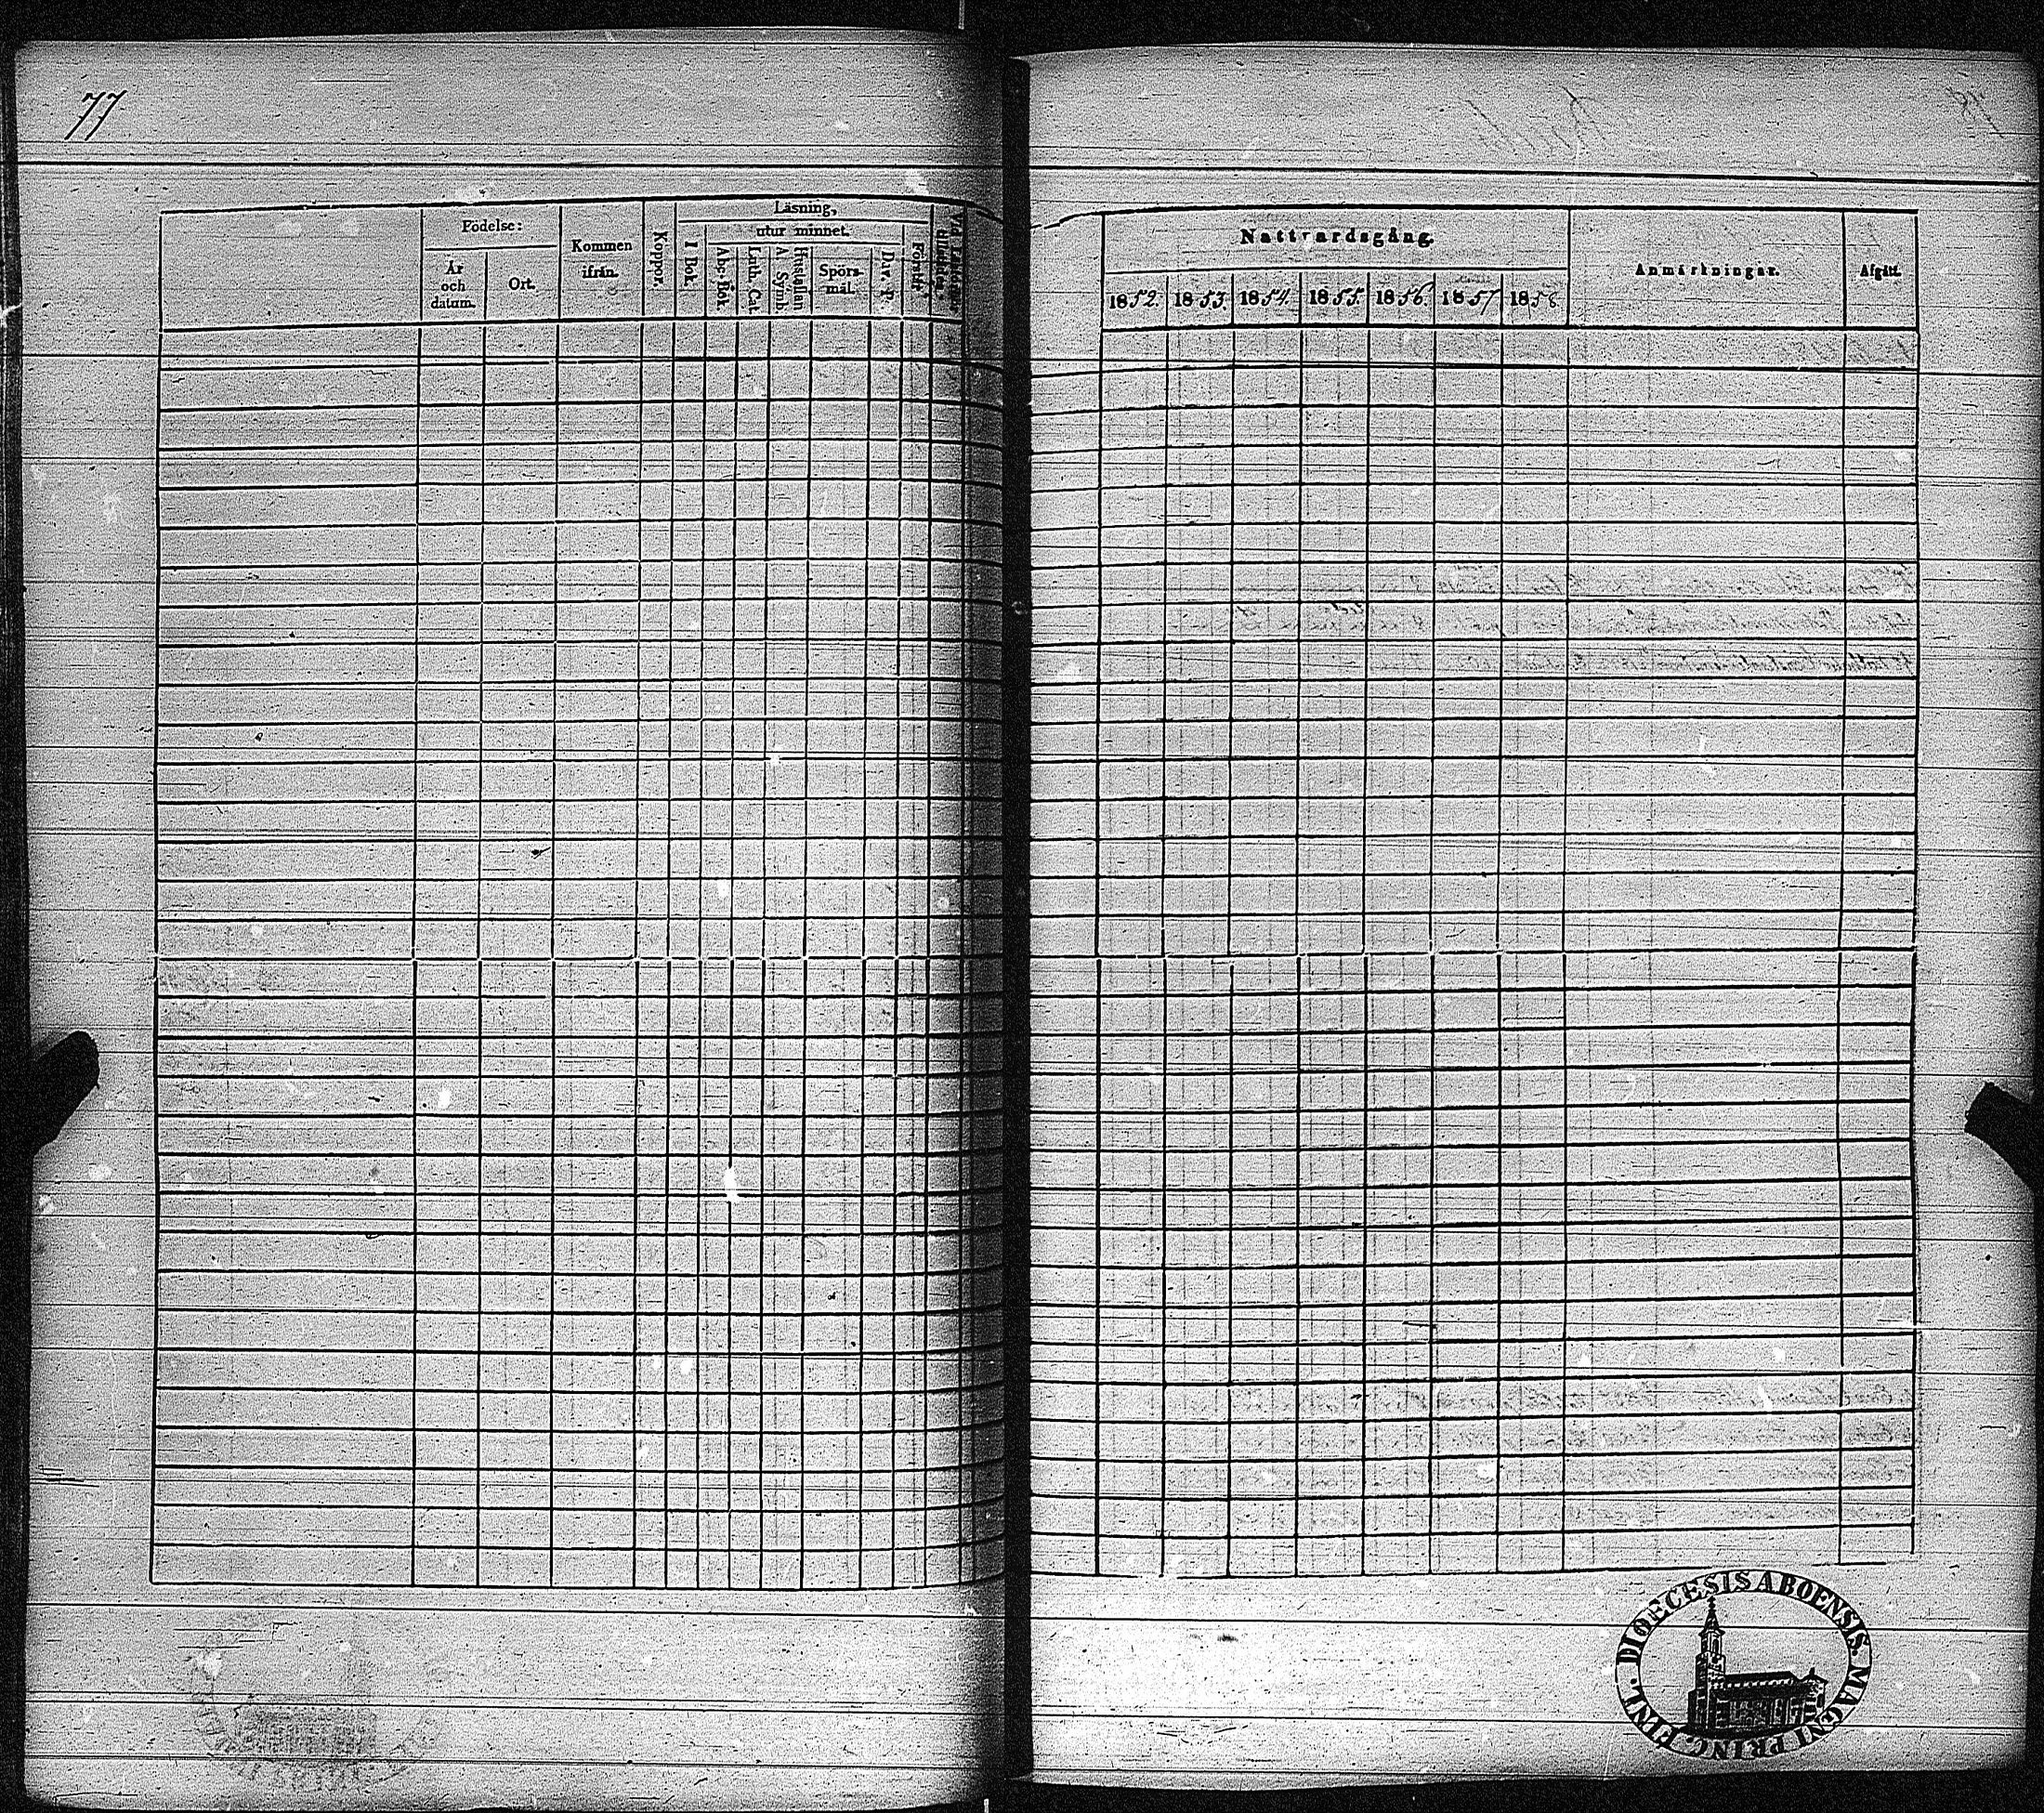 77
Födelse:
År och datum.
Ort.
Kommen ifrån.
Koppor.
Läsning,
I Bok.
utur minnet.
Abc-Bok.
Luth. Cat.
Hustaflan A. Symb.
Spörsmål.
Dav. p.
Förstår
Nattvardsgång.
1852.
1853.
1854.
1855.
1856.
1857
1858.
Anmärkningar.
Afgått.
DIOECESIS ABOENSIS. MAGNI PRINC. FINL.